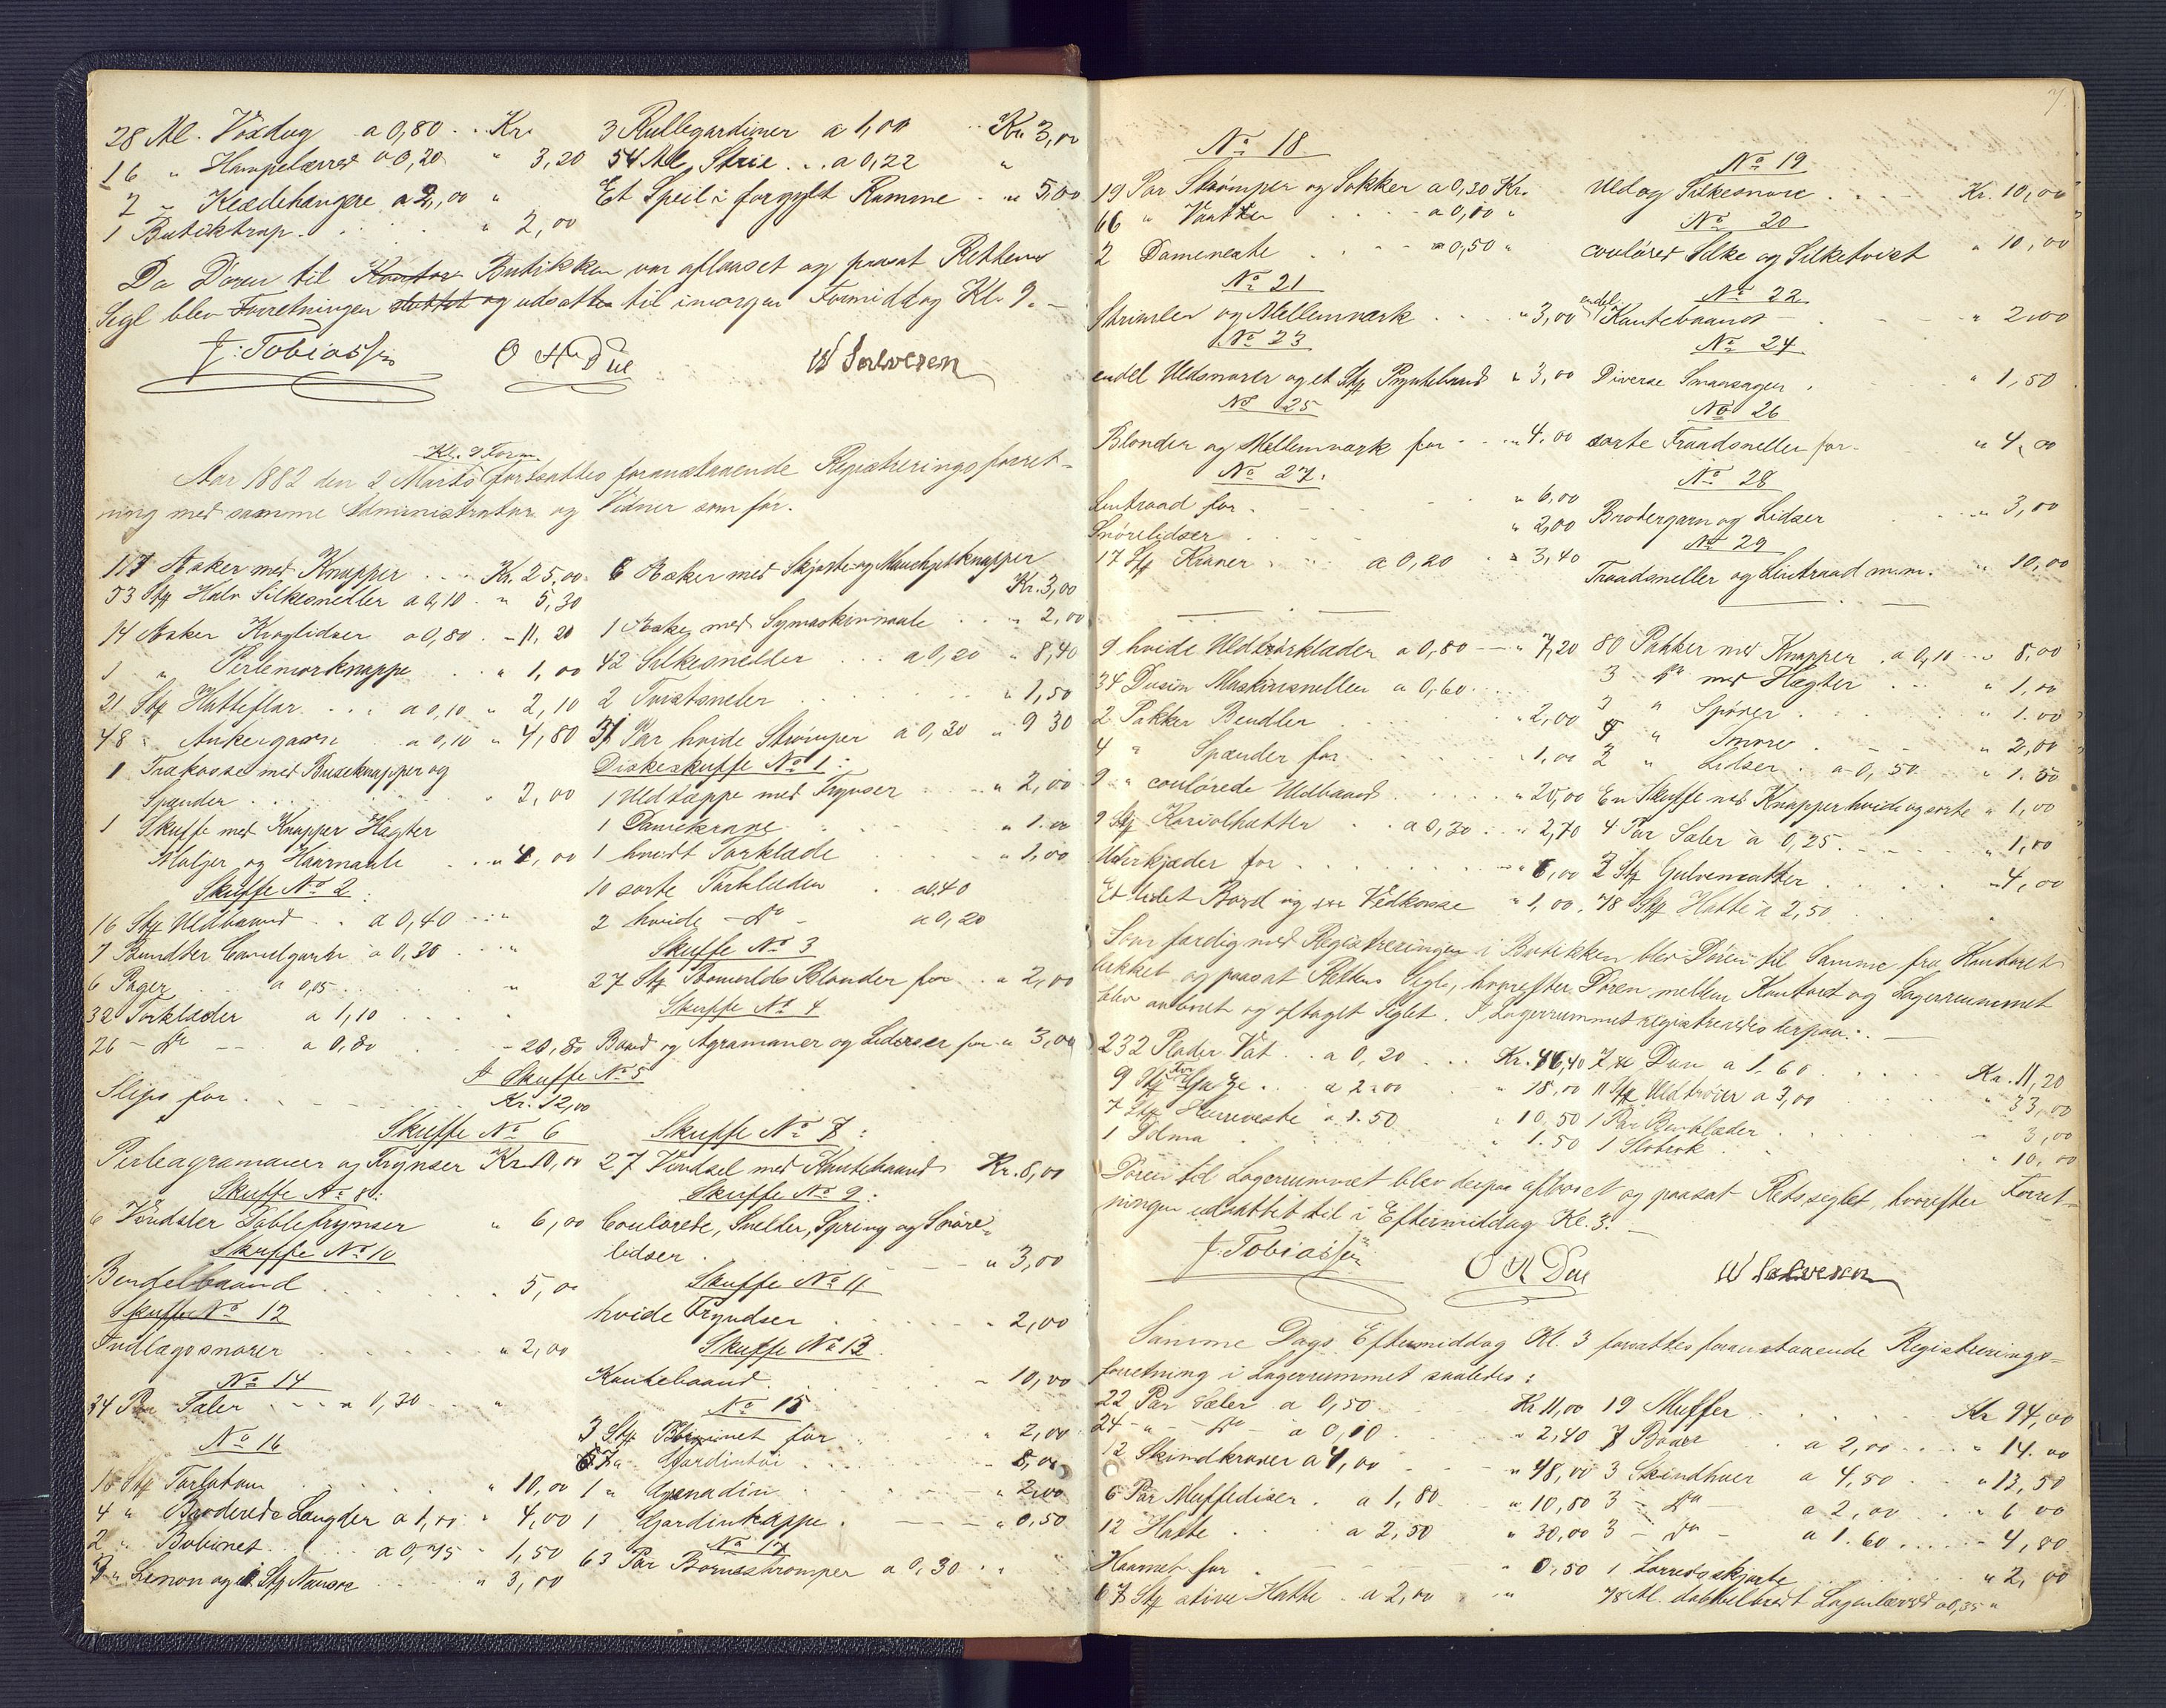 28 Al. Voxdug a 0,80 . . Kr.
16 " Hampelærred a 0,20 " 3,20
2 " Klædehængere a 2,00 "
1 Butiktrap . . . . " 2,00
3 Rullegardiner a 1,00 . . Kr. 3,00
54 Al. Strie . . a 0,22 "
Et Speil i forgyldt Ramme . " 5,00
Da Døren til Kontor Butikken var aflaaset og paasat Rettens
Segl blev Forretningen sluttet og udsatte til imorgen Formiddag Kl. 9. –
J. Tobiassen O H Due W Salvesen
Kl. 9 Form.
Aar 1882 den 2 Marts fortsattes foranstaaende Registreringsforret-
ning med samme Administrator og Vidner som før.
117 Æsker med Knapper . . . Kr. 25,00
53 Stk Halv Silkesneller a 0,10 . " 5,30
14 Æsker Kraglidser a 0,80 . - 11,20
1 " Perlemorknappe . . " 1,00
21 Stk Hatteflor . . . a 0,10 " 2,10
48 " Ankergarn a 0,10 " 4,80
1 Trækasse med Buxeknapper og
Spænder . . . . " 2,00
1 Skuffe med Knapper Hægter
Maljer og Haarnaale . . " 4,00
6 Æsker med Skjorte og Manchetknapper
Kr. 3,00
1 Æske med Symaskinnaale . . " 2,00
42 Silkesneller . . . a 0,20 " 8,40
2 Twistsneller " 1,50
31 Par hvide Strømper a 0,30 " 9 30
Diskeskuffe No 1:
1 Uldtæppe med Frynser " 2,00
1 Damekrave " 1.00
1 hvidt Tørklæde " 1,00
10 sorte Tørklæder . a 0.40
2 hvide - Do - a 0,20
Skuffe No 2:
16 Stk Uldbaand . . a 0,40 . . . "
7 Bundter Camelgarn a 0,30 . . . "
6 Pager . . a 0,05 . . . "
32 Tørklæder a 1,10 . . . "
26 - Do - - a 0,80 . - 20,80
Skuffe No 3
27 Stk Bomulds Blonder for . " 2,00
Skuffe No 4
Baand og Agramaner og Lidser for " 3,00
I Skuffe No 5
Slips for . . . . Kr. 12,00
Skuffe No 6
Perleagramaner og Frynser Kr. 10,00
Skuffe No 7:
27 Vindsel med Kantebaand Kr. 8,00
Skuffe No 8:
6 Vindsler Dablefrynser " 6,00
Skuffe No 9:
Coulørede, Sneller, Spring og Snøre-
lidser . . . " 3,00
Skuffe No 10
Bendelbaand . . . . 5,00
Skuffe No 11
hvide Fryndser . . . " 2,00
Skuffe No 12
Indlægssnorer . . . " 2,00
Skuffe No 13
Kantebaand . . . " 10,00
No 14
34 Par Saler . . . a 0,30 . . "
No 15
3 Stk Bobinet for . . " 2,00
7 " Gardintøi . . . " 8,00
1 " Grenadin . . " 2,00
1 Gardinkappe . " 0,50
No 16
16 Stk Tarlatan . . " 10,00
4 " Broderede Længder a 1,00 " 4,00
2 " Bobinet . . . a 0,75 " 1,50
" Linon og 1 Stk Nansok " 3,00
No 17
63 Par Børnestrømper a 0,30 . "
7.
No 18
19 Par Strømper og Sokker a 0,30 Kr.
66 " Vanter . . . a 0,10 "
2 Dameveste . . . a 0,50 "
No 19
Uld og Silkesnore . . . Kr. 10,00
No 20
couløret Silke og Silketvist " 10,00
No 21
Strimler og Mellemværk . . . " 3,00
No 22
endel Kantebaand . . " 2,00
No 23
endel Uldsnorer og et Stk Pyntebaand " 3,00
No 24
Diverse Smaasager . " 1,50
No 25
Blonder og Mellemværk for . . " 4.00
No 26
sorte Traadsneller for . " 4,00
No 27.
Lintraad for . . . " 6,00
Snørelidser . . . " 2,00
17 Stk Kraver . . a 0,20 . " 3,40
No 28
Brodergarn og Lidser . . " 3,00
No 29
Traadsneller og Lintraad m.m. " 10,00
9 hvide Uldtørklæder a 0,80 — " 7,20
34 Dusin Maskinsneller a 0,60 . . .
2 Pakker Bendler . . . " 2,00
4 " Spænder for . . . " 1,00
9 " coulørede Uldbaand . . . " 20,00
9 Stk Kariolhatter . . a 0,30 . . " 2,70
Uhrkjæder for . . . . " 6,00
Et lidet Bord og en Vedkasse " 1,00
80 Pakker med Knapper . a 0,10 . . " 8,00
3 Do med Hægter . . . " 1,00
3 " Sporer . . . " 1.00
" Snore . . . " 2,00
3 " Lidser . a 0,50 " 1.50
En Skuffe med Knapper hvide og sorte " 1,00
4 Par Saler a 0,25 . . . " 1,00
2 Stk Gulvmatter . . . " 4,00
78 Stk Hatte a 2,50
Som færdig med Registreringen i Butikken blev Døren til Samme fra Kontoret
lukket og paasat Rettens Segl, hvorefter Døren mellem Kontoret og Lagerrummet
blev aabnet og aftaget Seglet. I Lagerrummet registreredes derpaa: . —
232 Plader Vat . . a 0,20 . . . Kr. 46,40
9 Stk Gaze . . . a 2.00 " 18,00
7 Stk Herreveste a 1.50 " 10.50
1 Dolma . . . " 1.50
7 Dun a 1.60 . . . Kr. 11,20
11 Stk Uldtrøier a 3,00 " 33,00
1 Par Benklæder . . " 3,00
1 Slobrok . . . " 10,00
Døren til Lagerrummet blev derpaa aflaaset og paasat Retsseglet, hvorefter Forret-
ningen udsattet til i Eftermiddag Kl. 3. –
J. Tobiassen O H Due W Salvesen
Samme Dags Eftermiddag Kl. 3 forsattes foranstaaende Registrerings-
forretning i Lagerrummet saaledes:
22 Par Sæler a 0,50 . . Kr 11,00
24 - " - Do - a 0,10 . . " 2,40
12 Skindkraver a 4,00 . . " 48,00
6 Par Muffediser . a 1,80 . " 10,80
12 Hatte . . . a 2,50 " 30,00
Haarnet for . . . " 0,50
67 Stk stive Hatte . a 2,00 . . "
19 Muffer . . . . Kr 94,00
7 Boaer . . a 2,00 . . " 14.00
3 Skindhuer a 4,50 . . " 13,50
3 - Do - a 2,00 . . " 6 00
3 - Do - a 1.60 . . . " 4,80
1 Lærredsskjorte . . . " 2,00
78 Al. dobbeltbredt Lagenlærred a 0,35 "